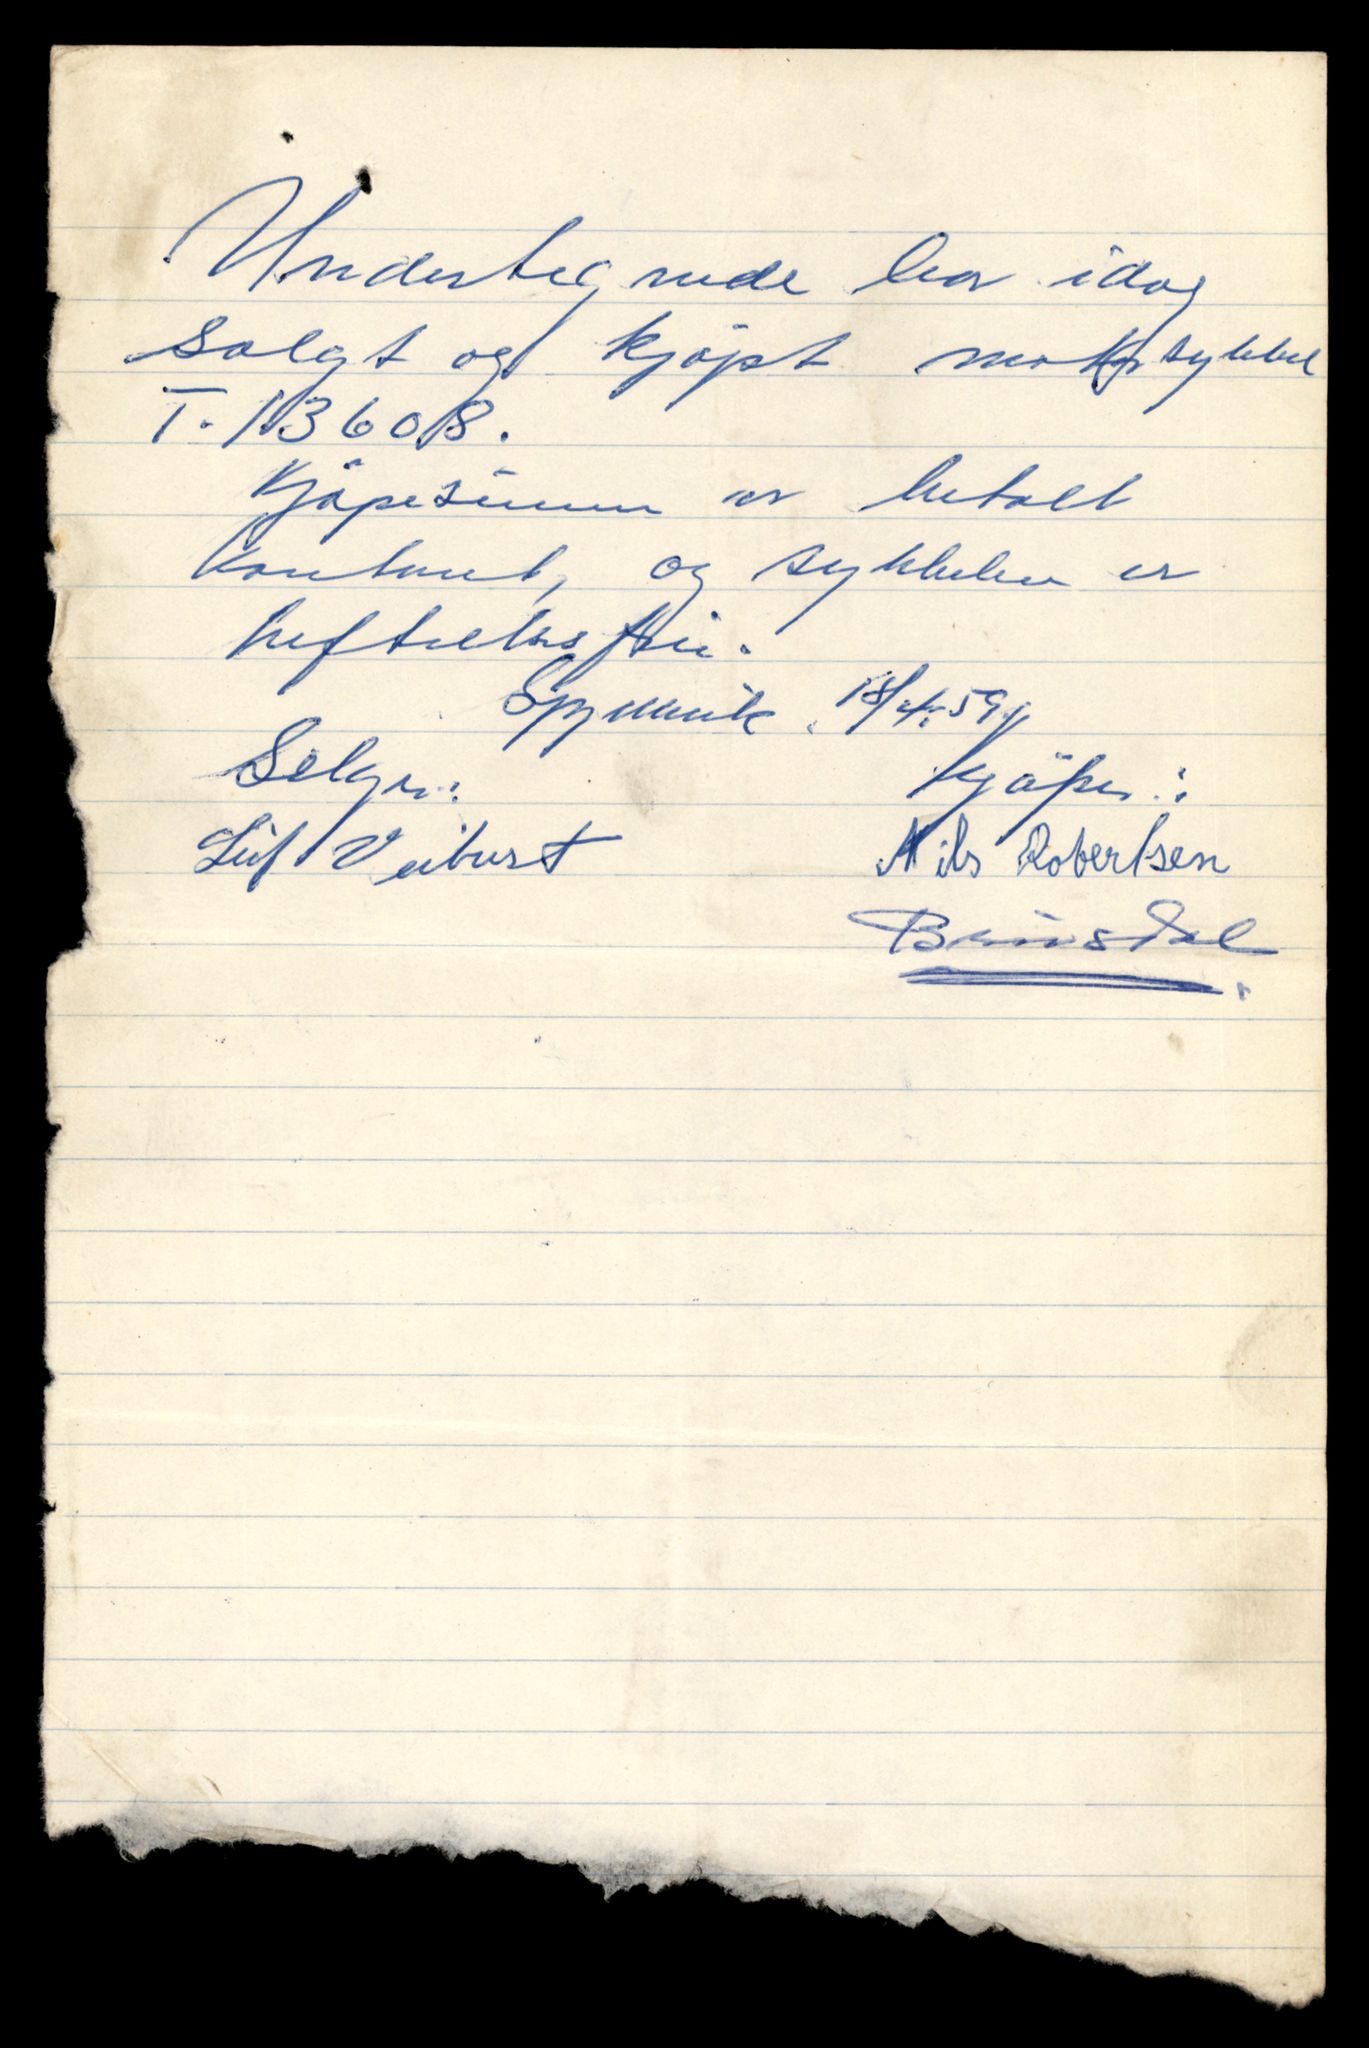 Undertegnede har idag
solgt og kjöpt motorsykkel
T. 13608.
Kjöpesummen er betalt
kontant, og sykkelen er
heftelsesfri.
18/4. 59.
Selger:
Leif Veibust
Kjöper:
Nils Robertsen
Brunsdal